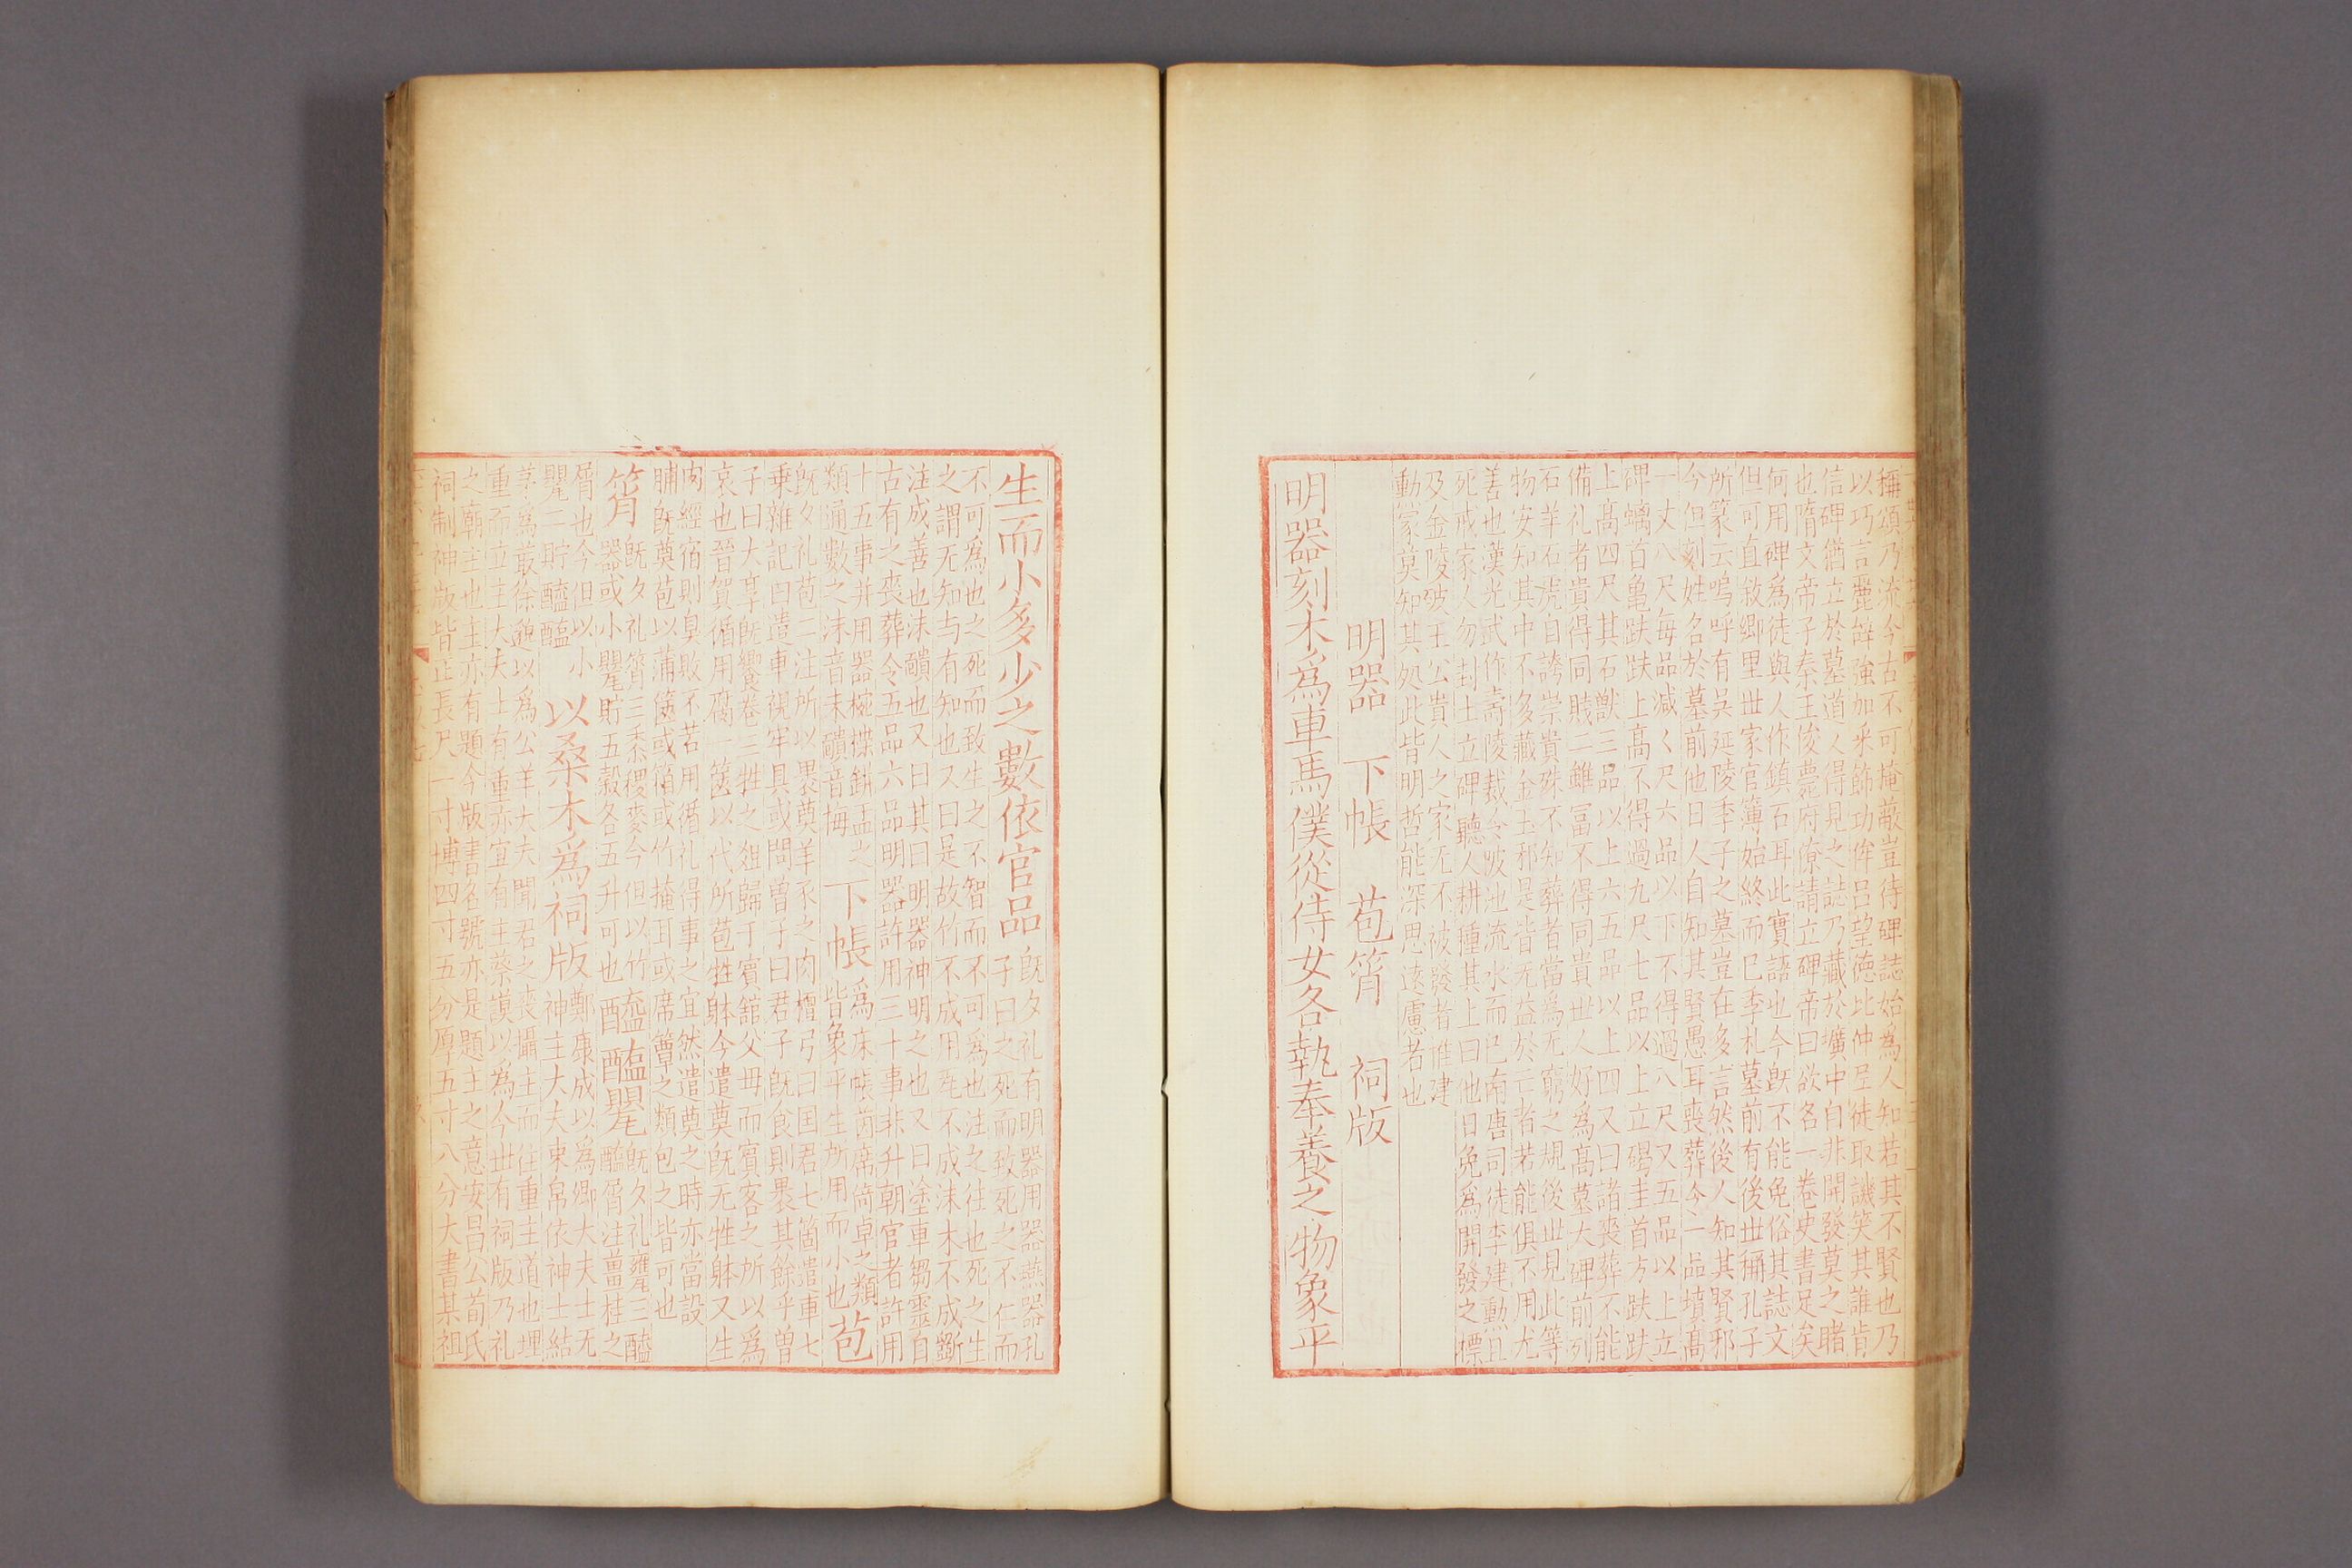 稱頌乃流今古不可掩蔽豈待碑誌始爲人知若其不賢也乃
以巧言麗辭強加采飾功侔呂望德比仲尼徒取譏笑其誰肯
信碑猶立於墓道人得見之誌乃藏於壙中自非開發莫之睹
也隋文帝子秦王俊薨府僚請立碑帝曰欲名一卷史書足矣
何用碑爲徒與人作鎮石耳此實語也今旣不能免俗其誌文
但可直敘鄉里世家官簿始終而已季札墓前有後世稱孔子
所篆云嗚呼有吳延陵季子之墓豈在多言然後人知其賢邪
今但刻姓名於墓前他日人自知其賢愚耳喪葬令一品墳高
一丈八尺每品減〻尺六品以下不得過八尺又五品以上立
碑螭首亀趺趺上高不得過九尺七品以上立碣圭首方趺趺
上高四尺其石獸三品以上六五品以上四又曰諸喪葬不能
備礼者貴得同賤二雖冨不得同貴世人好爲高墓大碑前列
石羊石虎自誇崇貴殊不知葬者當爲无窮之規後世見此等
物安知其中不多藏金玉邪是皆无益於亡者若能俱不用尤
善也漢光武作壽陵裁令陂池流水而已南唐司徒李建勳且
死戒家人勿封土立碑聽人耕種其上曰他日免爲開發之標
及金陵破王公貴人之家无不被發者惟建
動家莫知其処此皆明哲能深思遠慮若也
明器　下帳　苞筲　祠版
明器刻木爲車馬僕從侍女各執奉養之物象平
生而小多少之數依官品
旣夕礼有明器用器燕器孔
子曰之死而致死之不仁而
不可爲也之死而致生之不智而不可爲也注之往也死之生
之謂无知与有知也又曰是故竹不成用瓦不成沬木不成斲
注成善也沬靧也又曰其曰明器神明之也又曰塗車芻靈自
古有之喪葬令五品六品明器許用三十事非升朝官者許用
十五事并用器椀楪鉼盂之
類通數之沬音末靧音悔
下帳
爲床帳茵席倚卓之類
皆象平生所用而小也
苞
旣夕礼苞二注所以裹奠羊豕之肉檀弓曰国君七箇遣車七
乗雜記曰遣車視牢具或問曽子曰君子旣食則裹其餘乎曽
子曰大享旣饗卷三牲之俎歸于賓舘父母而賓客之所以爲
哀也晉賀循用腐一篋以代所苞牲躰今遣奠旣无牲躰又生
肉經宿則臭敗不若用循礼得事之宜然遣奠之時亦當設
脯旣奠苞以蒲篋或筲或竹掩耳或席簟之類包之皆可也
筲
旣夕礼筲三黍稷麥今但以竹
器或小甖貯五穀各五升可也
醯醢甖
旣夕礼甕三醯
醢屑注薑桂之
屑也今但以小
甖二貯醯醢
以桑木爲祠版
鄭康成以爲卿大夫士无
神主大夫束帛依神士結
茅爲菆徐邈以爲公羊大夫聞君之喪攝主而往重主道也埋
重而立主大夫士有重亦宜有主蔡謨以爲今世有祠版乃礼
之廟主也主亦有題今版書名號亦是題主之意安昌公荀氏
祠制神版皆正長尺一寸博四寸五分厚五寸八分大書某祖